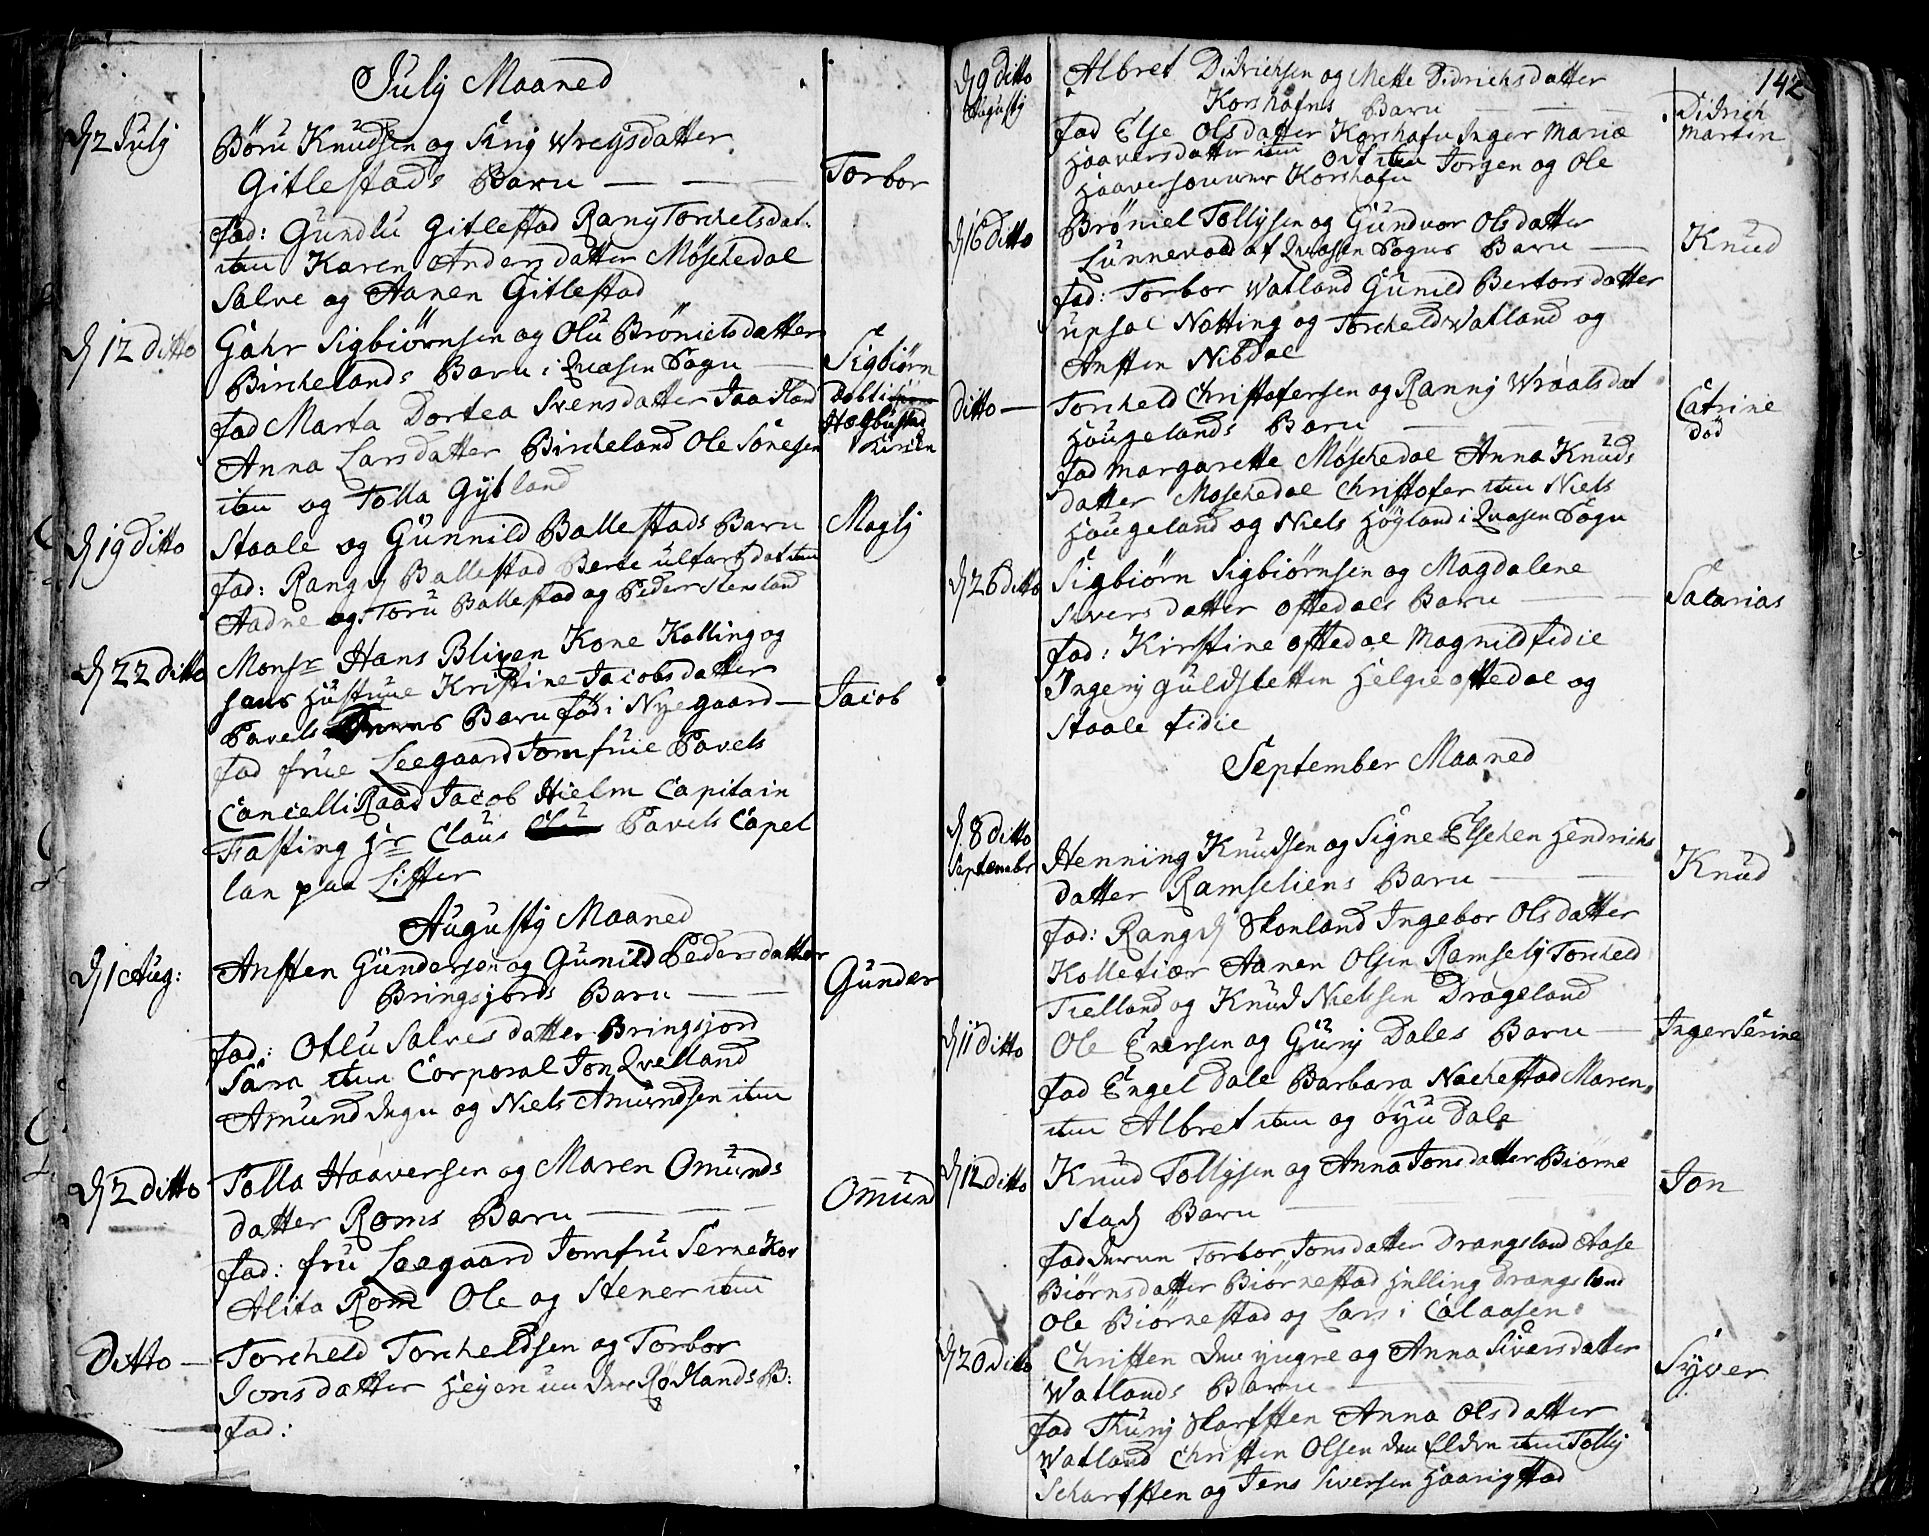 July Maaned
d 2 July
Börü Knudsen og Siri Wreysdatter
Gitlestads Barn — — — Torbor
fad: Gundlu Gitlestad Rany Torchelsdat:
itm Karen Andersdatter Møschedal
Salve og Aanen Gitlestad
d 12 ditto Gahr Sigbiørnsen og Olu Brönielsdatter
Birchelands Barn i Qvasen Sogn — Sigbiørn
fad Marta Dortea Svensdatter
Anna Larsdatter Bircheland Ole Sönesen
itm og Tolla Gyland
d 19 ditto Staale og Gunnild Ballestads Barn Magly
fad: Rang d Ballestad Berte dat itm
Aadne og Toru Ballestad og Peder Stensland
d 22 ditto Monsr Hans Blixen Kone Kolling og
hans Hustrue Kristine Jacobsdatter
Pavels Barn fød i Nyegaard — Jacob
fad frue Leegaard Jomfrue Pavels
CancelliRaad Jacob Hielm Capitain
Fasting Hr Claus Pavels Capel
lan paa Lister
Augusty Maaned
d 1 Aug: Ansten Gundersen og Gunild Pedersdatter
Bringsjords Barn — — Gunder
fad: Otlu Salvesdatter Bringsjord
Sara itm Corporal Jon Qvelland
Amund og Niels Amundsen itm
d 2 ditto Tolla Haaversen og Maren Omunds
datter Roms Barn — — — Omund
fad: fru Leegaard Jomfru
Alita Rom Ole og Stener itm
Ditto — Torcheld Torcheldsen og Torbor
Jonsdatter Rødlands B:
fad:
142
d 9 ditto Albret Didrichsen og Mette Didrichsdatter
Augusty Korshafns Barn — — — Didrich
fad Else Olsdatter Korshafn Inger Mariæ Martin
Haaversdatter itm itm Jorgen og Ole
Haaversönner Korshafn
d 16 ditto Bröniel Tollysen og Gundvor Olsdatter
Sunnevad af Qvasen Sogns Barn — Knud
fad: Torbor Watland Gunild Bertorsdatter
upsal Notting og Torcheld Watland og
Ansten Nibdal
ditto — Torcheld Christofersen og Ranny Wraalsdat Catrine
Haugelands Barn — — død
fad Margarette Møschedal Anna Knuds
datter Møschedal Christofer itm Niels
Haugeland og Niels Høyland i Qvasen Sogn
d 26 ditto Sigbiørn Sigbiørnsen og Magdalene
Siversdatter Oftedals Barn — Salarias
fad: Kirstine Oftedal Magnild fidie
Ingerij Guldsletten Helgie Oftedal og
Staale fidie
September Maaned
d 8 ditto
September Henning Knudsen og Signe Elschen Hendrichs
datter Ramseliens Barn — — Knud
fad: Rang d Skonland Ingebor Olsdatter
Kollekiær Aanen Olsen Ramsely Torcheld
Tielland og Knud Nielsen Drageland
d 11 ditto Ole Enersen og Gury Dales Barn — Inger Serine
fad Engel Dale Barbara Nachestad Maren
itm Albret itm og öyu Dale
d 12 ditto Knud Tollysen og Anna Jonsdatter Biørne
stad Barn — Jon
fad Torbor Jonsdatter Drangsland Aase
Biørnsdatter Biørnestad Helling Drangsland
Ole Biørnestad og Lars i Calaasen
d 20 ditto Christen den yngre og Anna Siversdatter
Watlands Barn — — Syver
fad Thury Skarsten Anna Olsdatter
Watland Christen Olsen den Elden itm Tolly
Scharsten og Jens Siversen Haarigstad